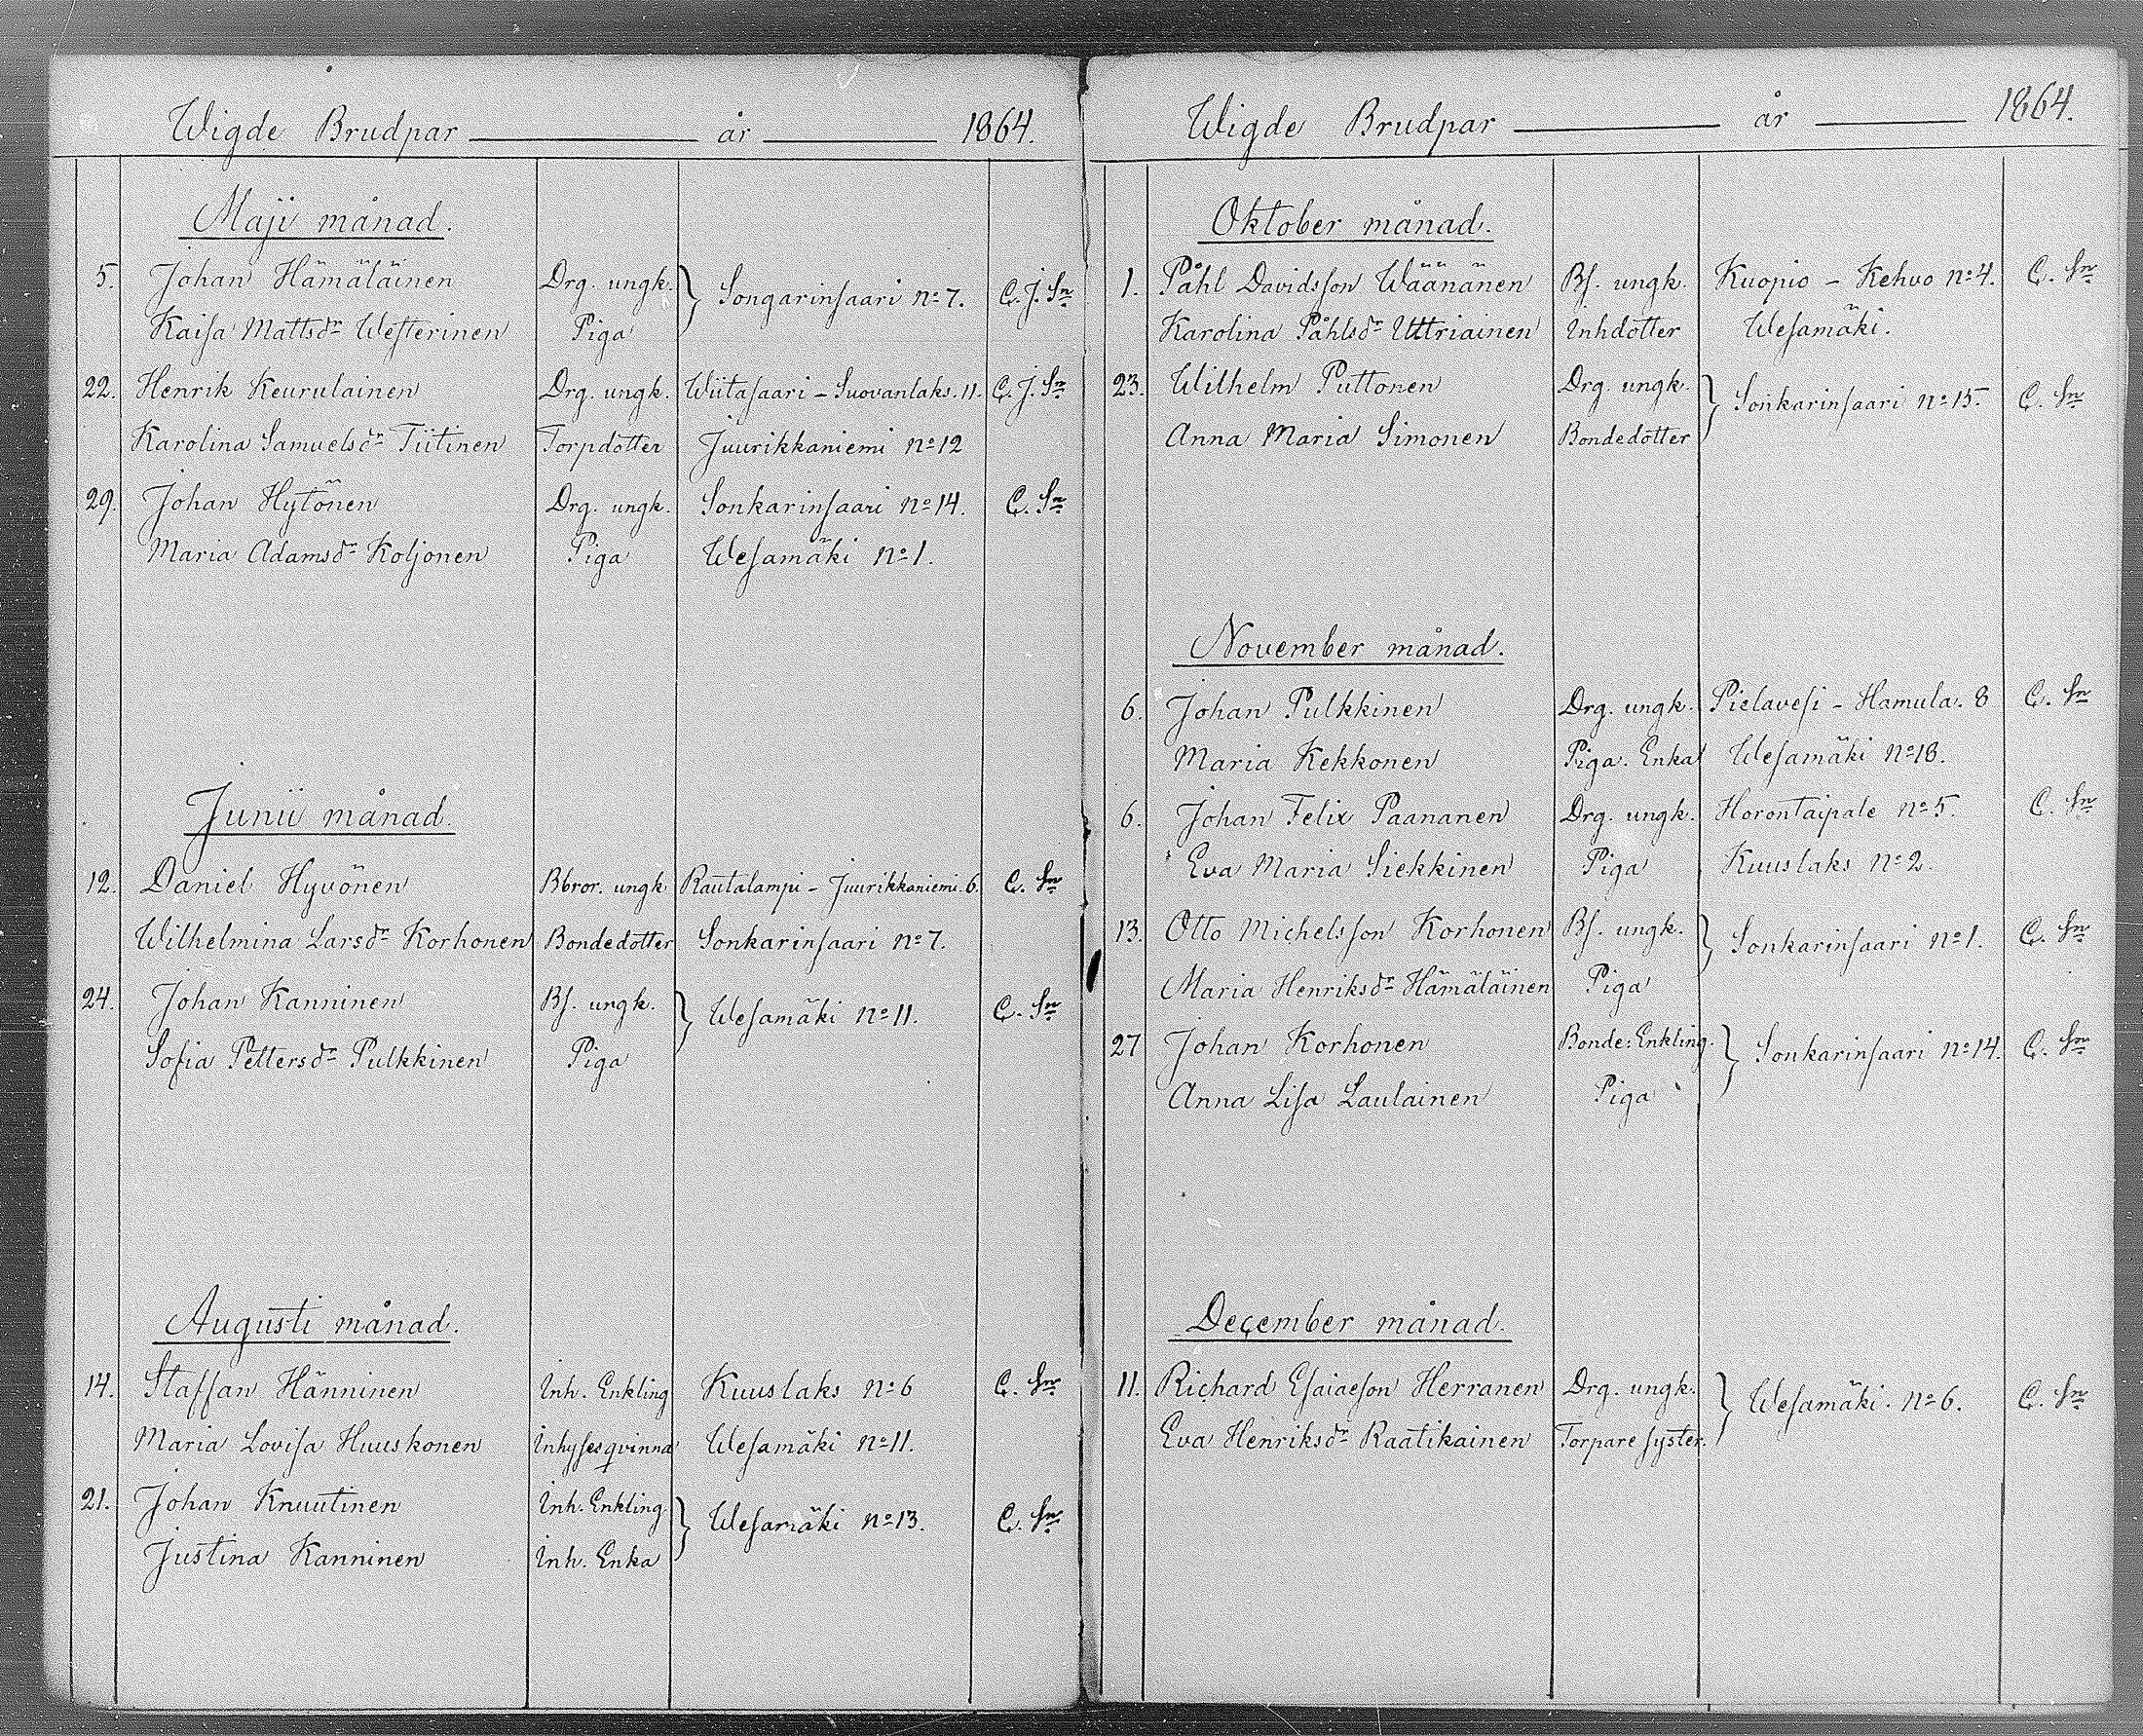 Wigde Brudpar år 1864.
Maji månad.
5. Johan Hämäläinen Drg. ungk. } Songarinsaari No 7. C. J. Sn
Kaisa Mattsdr Westerinen Piga
22. Henrik Keurulainen Drg. ungk. Wiitasaari - Suovanlaks. 11. C. J. Sn
Karolina Samuelsdr Tiitinen Torpdotter Juurikkaniemi No 12
29. Johan Hytönen Drg. ungk. Sonkarinsaari No 14. C. Sn
Maria Adamsdr Koljonen Piga Wesamäki No 1.
Junii månad.
12. Daniel Hyvönen Bbror. ungk Rautalampi - Juurikkaniemi. 6. C. Sn
Wilhelmina Larsdr Korhonen Bondedotter Sonkarinsaari No 7.
24. Johan Kanninen Bs. ungk. } Wesamäki No 11. C. Sn
Sofia Pettersdr Pulkkinen Piga
Augusti månad.
14. Staffan Hänninen Inh. Enkling Kuuslaks No 6 C. Sn
Maria Lovisa Huuskonen Inhysesqvinna Wesamäki No 11.
21. Johan Knuutinen Inh. Enkling. } Wesamäki No 13. C. Sn
Justina Kanninen Inh. Enka
Wigde Brudpar år 1864.
Oktober månad.
1. Påhl Davidsson Wäänänen Bs. ungk. Kuopio - Kehvo No 4. C. Sn
Karolina Påhlsdr Uttriainen Inhdotter Wesamäki.
23. Wilhelm Puttonen Drg. ungk. } Sonkarinsaari No 15. C. Sn
Anna Maria Simonen Bondedotter
November månad.
6. Johan Pulkkinen Drg. ungk. Pielavesi - Hamula. 8 C. Sn
Maria Kekkonen Piga. Enka Wesamäki No 18.
6. Johan Felix Paananen Drg. ungk. Horontaipale No 5. C. Sn
Eva Maria Siekkinen Piga Kuuslaks No 2.
13. Otto Michelsson Korhonen Bs. ungk. } Sonkarinsaari No 1. C. Sn
Maria Henriksdr Hämäläinen Piga
27 Johan Korhonen Bonde: Enkling. } Sonkarinsaari No 14. C. Sn
Anna Lisa Laulainen Piga
December månad.
11. Richard Esaiaeson Herranen Drg. ungk. } Wesamäki. No 6. C. Sn
Eva Henriksdr Raatikainen Torpare syster.